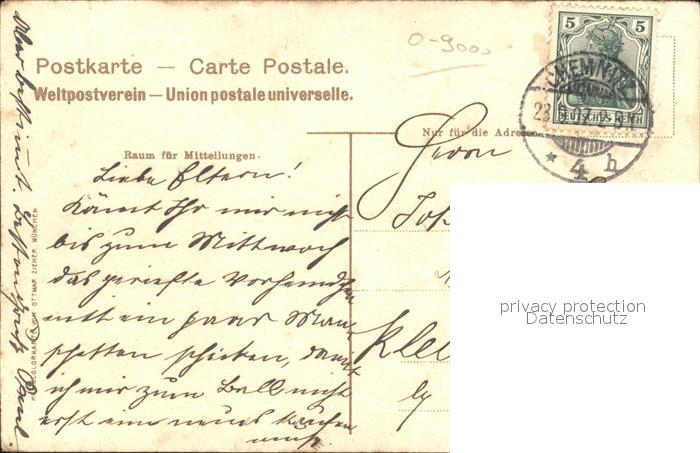 0-9000
5 5
Postkarte — Carte Postale.
Weltpostverein — Union postale universelle.
CHEMNITZ
DEUTSCHES REICH
* 4 h
Nur für die Adresse
Raum für Mitteilungen.
Herrn
Liebe Eltern!
Könnt Ihr mir nicht
bis zum Mittwoch
das geriefte Vorhemdchen
mit ein paar Man-
schetten schicken, damit
ich mir zum Ball nicht
erst ein neues kaufen
muss.
Aber bestimmt.
Paul
OTTMAR ZIEHER, MÜNCHEN
privacy protection
Datenschutz